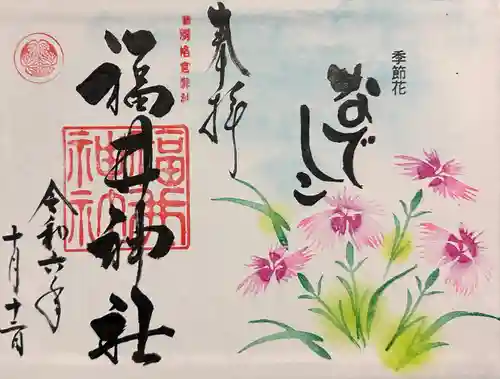 季節花
なでしこ
奉拝
別格官幣社
福井神社
福井神社
令和六年
十月十二日